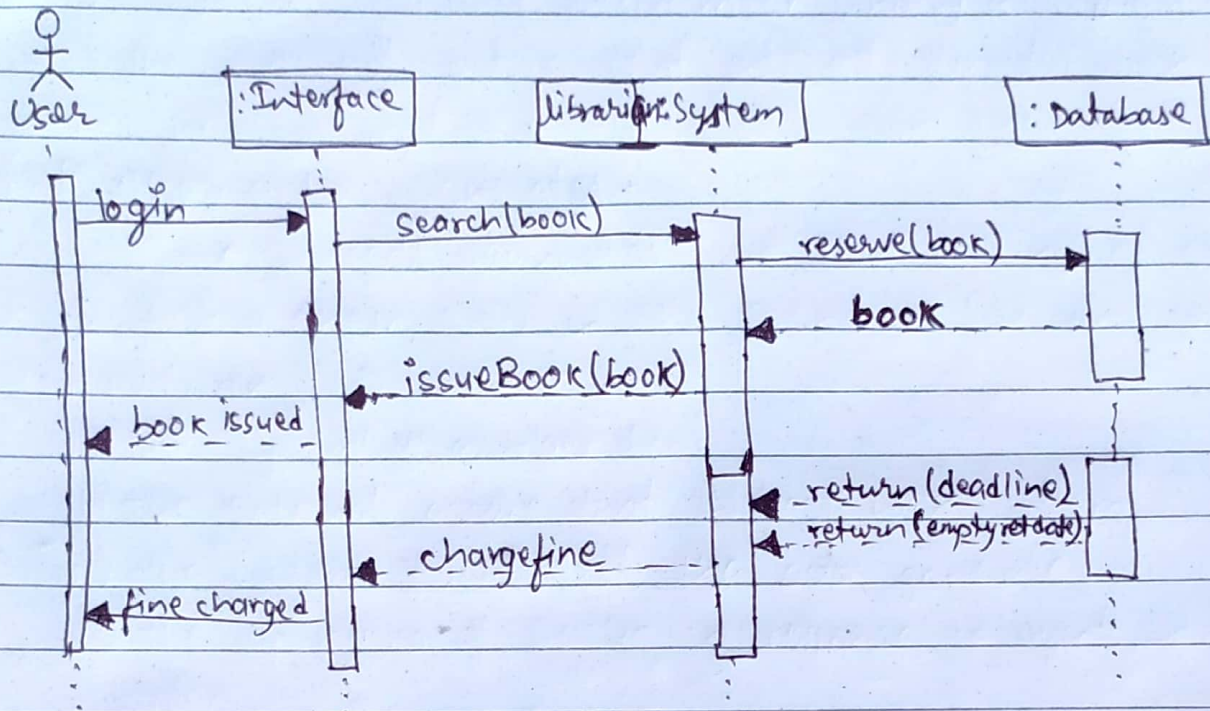 User
:Interface
librarian:System
: Database
login
search(book)
reserve(book)
book
issueBook(book)
book issued
return(deadline)
return(emptyretdate)
chargefine
fine charged